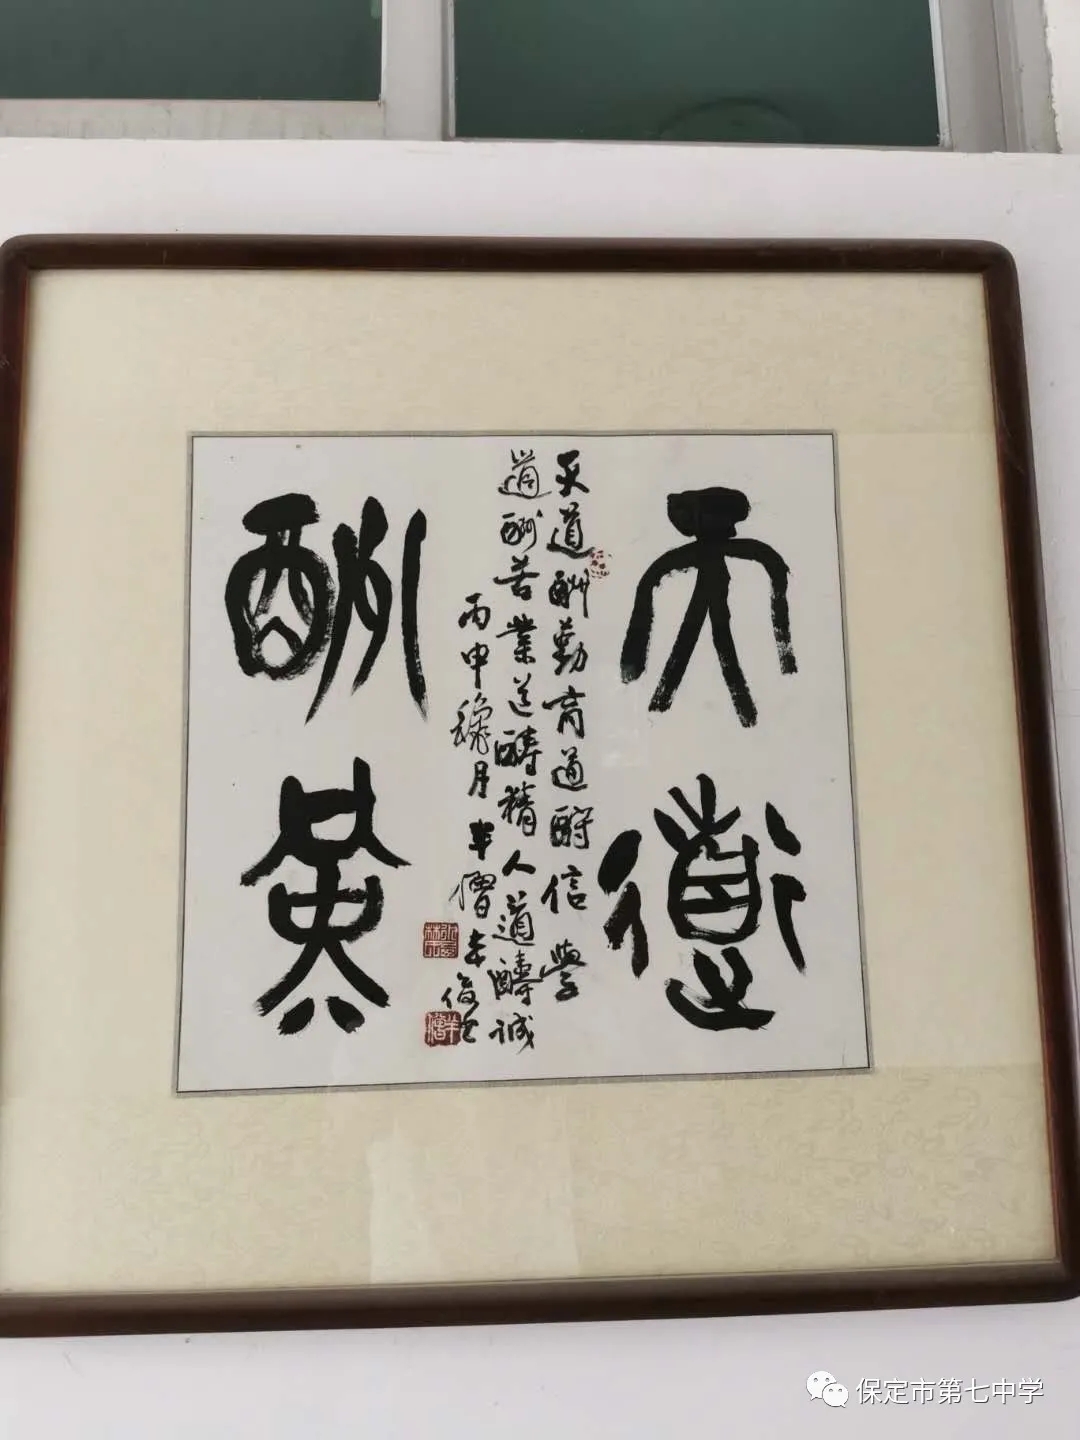 天道
天道酬勤商道酧信學
道酬苦業道醻精人道醻誠
丙申穐月半僧
酬勤
保定市第七中学